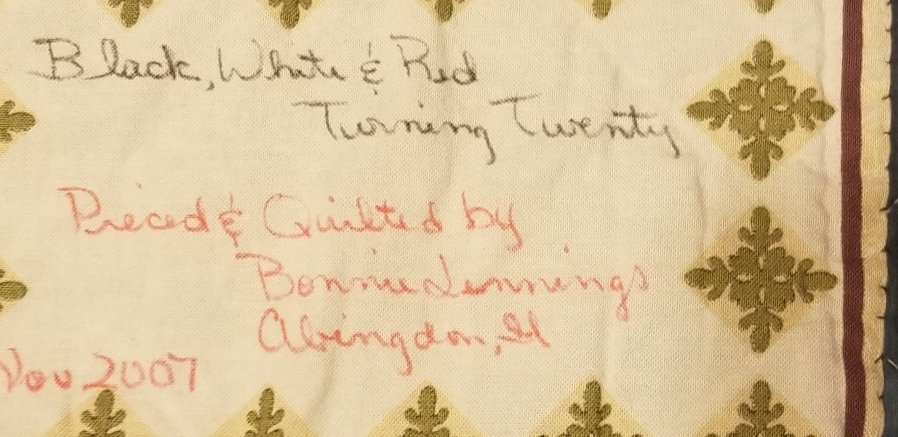 Black, White & Red
Turning Twenty
Pieced & Quilted by
Bonnie Jennings
Abingdon, Il
Nov 2007